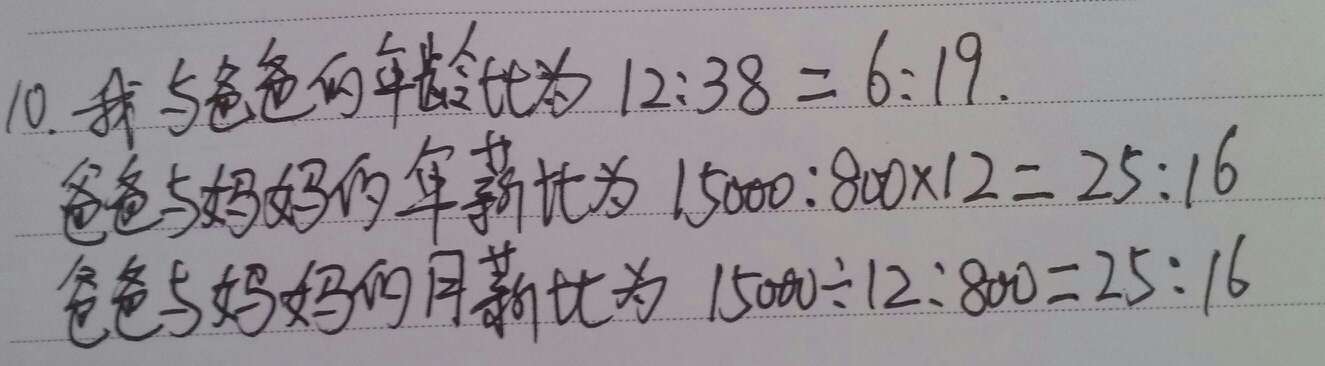 10. 我与爸爸的年龄比为 12:38 = 6:19.
爸爸与妈妈的年薪比为 15000:800×12 = 25:16
爸爸与妈妈的月薪比为 15000÷12:800=25:16